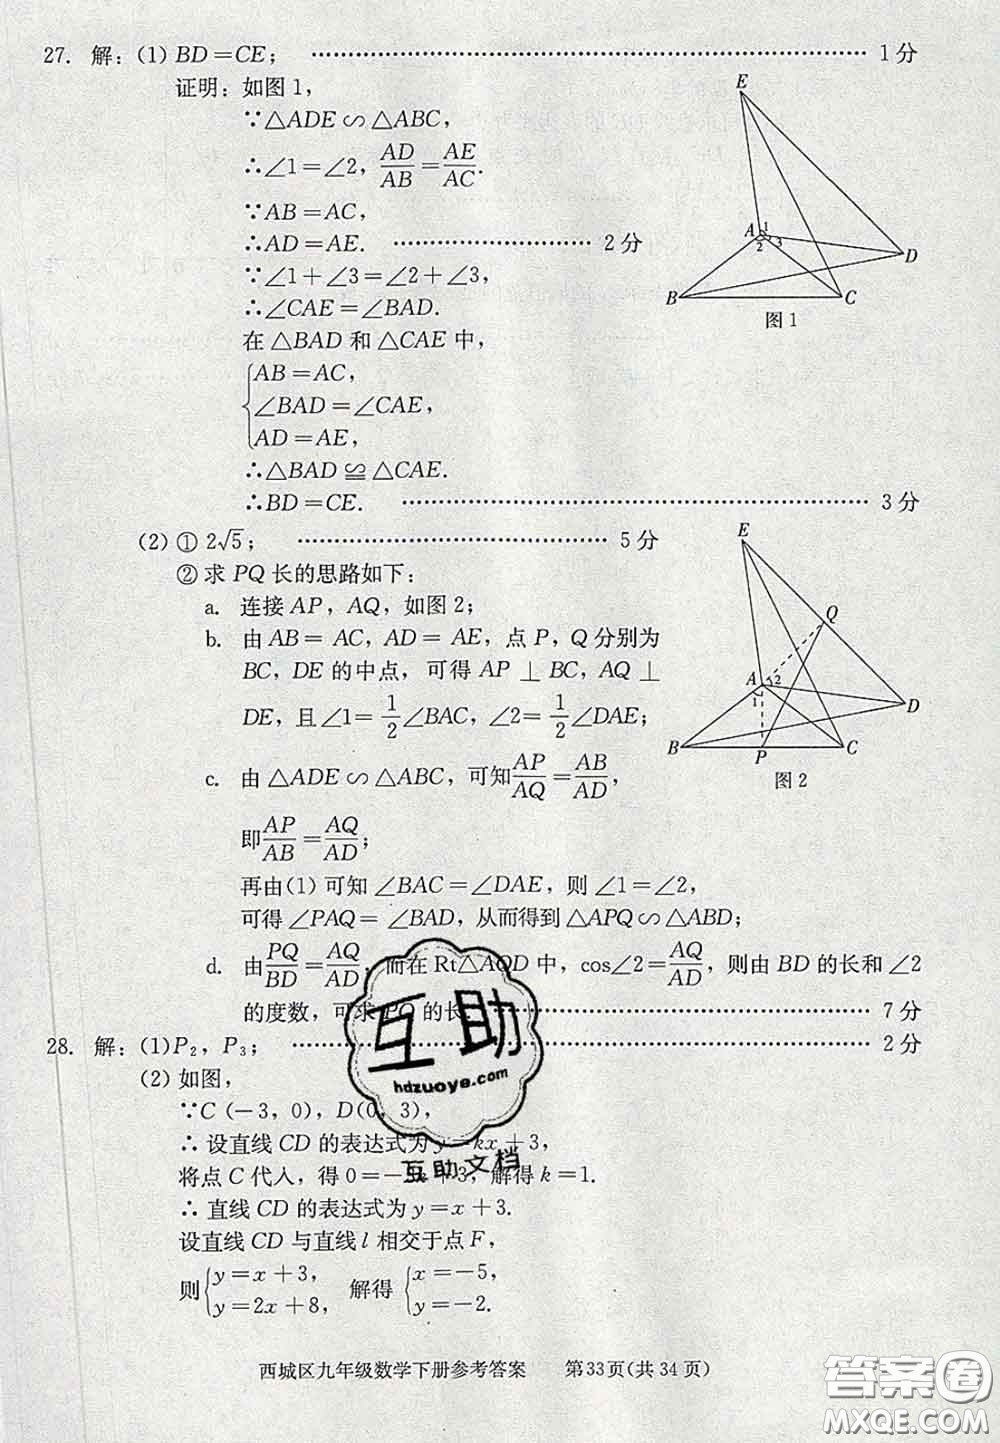 27. 解：(1) BD=CE； …… 1分
证明：如图1，
∵△ADE∽△ABC，
∴∠1=∠2，AD/AB=AE/AC.
∵AB=AC，
∴AD=AE. …… 2分
∵∠1+∠3=∠2+∠3，
∴∠CAE=∠BAD.
在△BAD和△CAE中，
AB=AC，
∠BAD=∠CAE，
AD=AE，
∴△BAD≌△CAE.
∴BD=CE. …… 3分
E
A 1
2 3
D
B C
图1
(2) ① 2√5； …… 5分
② 求PQ长的思路如下：
a. 连接AP，AQ，如图2；
b. 由AB=AC，AD=AE，点P，Q分别为
BC，DE的中点，可得AP⊥BC，AQ⊥
DE，且∠1=1/2∠BAC，∠2=1/2∠DAE；
c. 由△ADE∽△ABC，可知AP/AQ=AB/AD，
即AP/AB=AQ/AD；
再由(1)可知∠BAC=∠DAE，则∠1=∠2，
可得∠PAQ=∠BAD，从而得到△APQ∽△ABD；
E
Q
A 2
1
D
B P C
图2
d. 由PQ/BD=AQ/AD，而在Rt△AQD中，cos∠2=AQ/AD，则由BD的长和∠2
的度数，可求PQ的长. …… 7分
28. 解：(1)P₂，P₃； …… 2分
(2) 如图，
∵C(-3，0)，D(0，3)，
∴设直线CD的表达式为y=kx+3，
将点C代入，得0=-3k+3，解得k=1.
∴直线CD的表达式为y=x+3.
设直线CD与直线l相交于点F，
则 y=x+3， 解得 x=-5，
y=2x+8， y=-2.
西城区九年级数学下册参考答案 第33页(共34页)
互助
hdzuoye.com
互助文档
答案圈
MXQE.COM